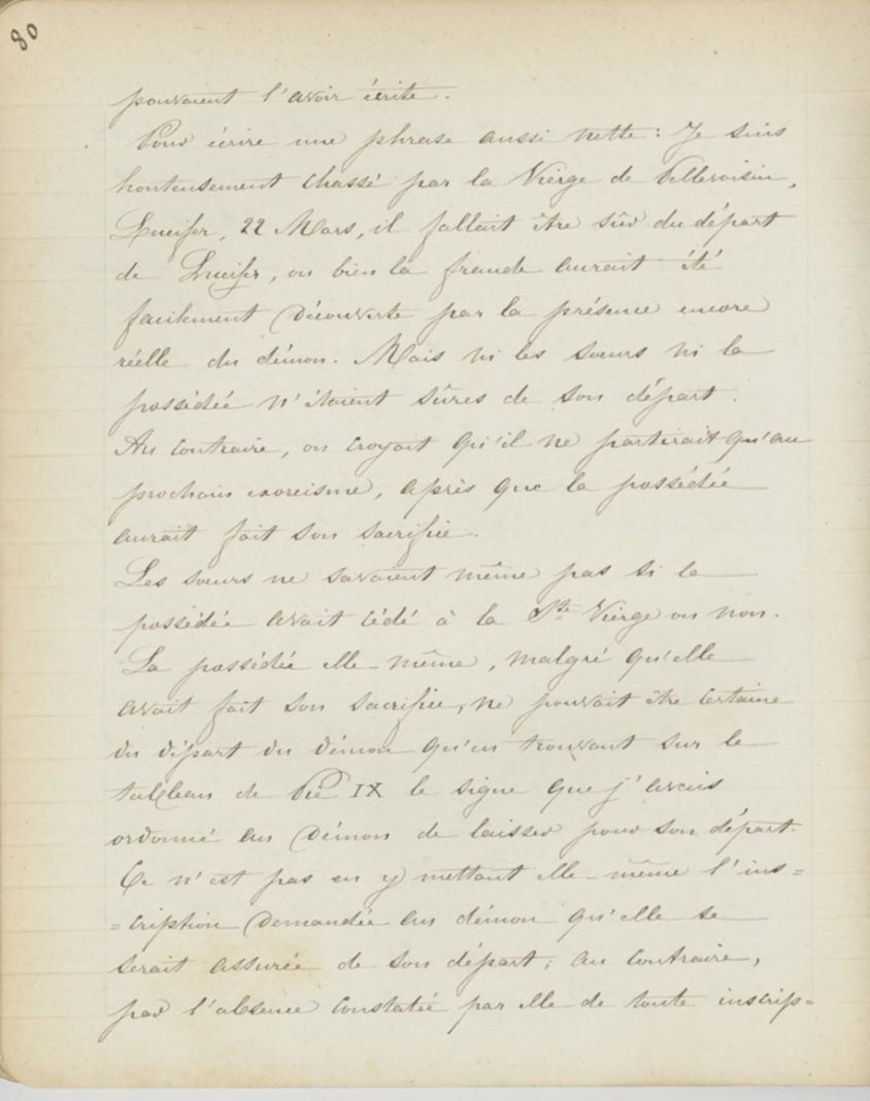 80
pouvaient l'avoir écrite.
Pour écrire une phrase aussi nette : Je suis
honteusement chassé par la Vierge de Pellevoisin,
Lucifer, 22 Mars, il fallait être sûr du départ
de Lucifer, ou bien la fraude aurait été
facilement découverte par la présence encore
réelle du démon. Mais ni les sœurs ni la
possédée n'étaient sûres de son départ.
Au contraire, on croyait qu'il ne partirait qu'au
prochain exorcisme, après que la possédée
aurait fait son sacrifice.
Les sœurs ne savaient même pas si la
possédée avait cédé à la Ste Vierge ou non.
La possédée elle-même, malgré qu'elle
avait fait son sacrifice, ne pouvait être certaine
du départ du démon qu'en trouvant sur le
tableau de Pie IX le signe que j'avais
ordonné au démon de laisser pour son départ.
Ce n'est pas en y mettant elle-même l'ins=
=cription demandée au démon qu'elle se
serait assurée de son départ ; au contraire,
par l'absence constatée par elle de toute inscrip=